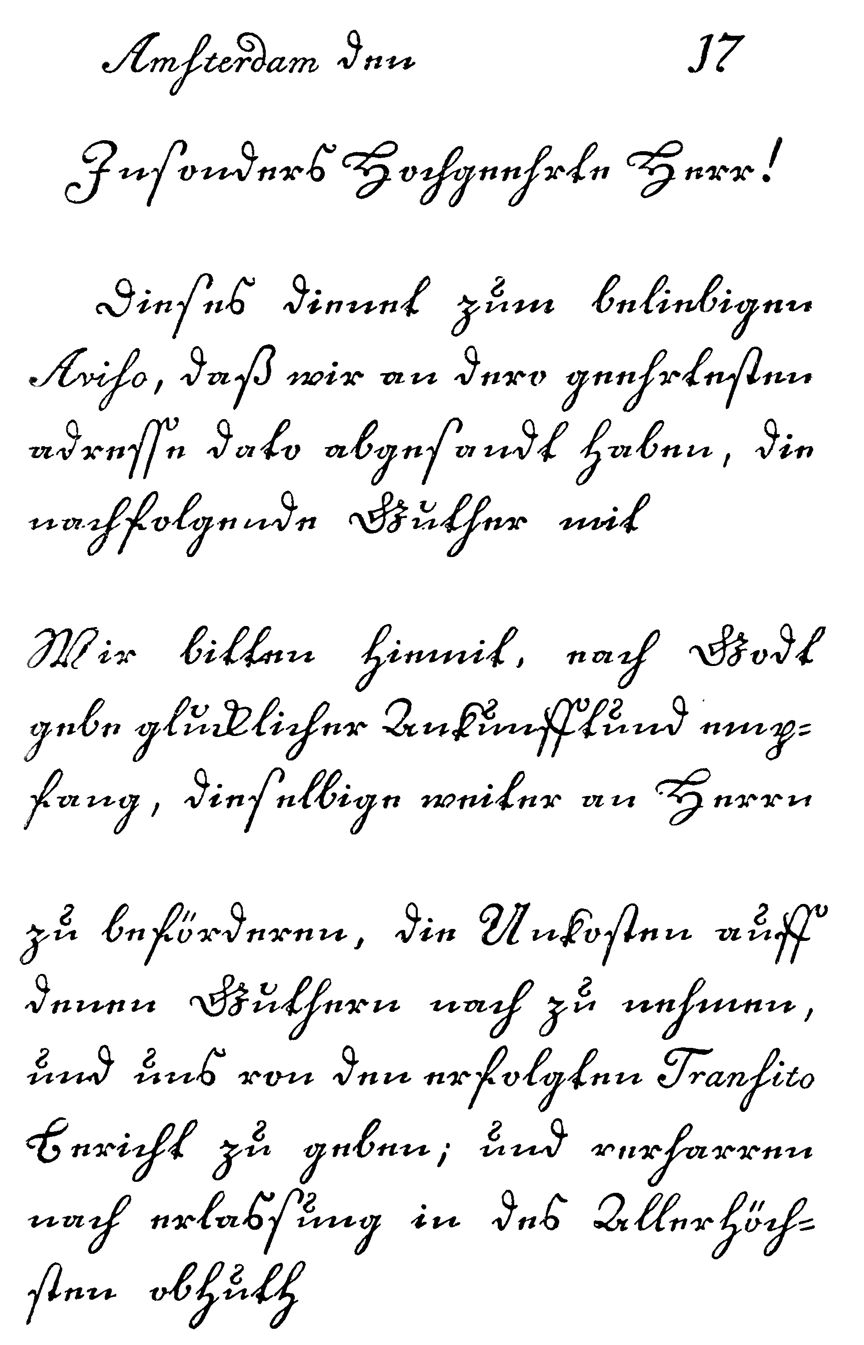 Amsterdam den 17
Insonders Hochgeehrte Herr!
Dieses dienet zum beliebigen
Aviso, daß wir an dero geehrtesten
adresse dato abgesandt haben, die
nachfolgende Guther mit
Wir bitten hiemit, nach Godt
gebe glucklicher Ankunfft und emp=
fang, dieselbige weiter an Herrn
zu beförderen, die Unkosten auff
denen Guthern nach zu nehmen,
und uns von den erfolgten Transito
Bericht zu geben; und verharren
nach erlassung in des Allerhöch=
sten obhuth